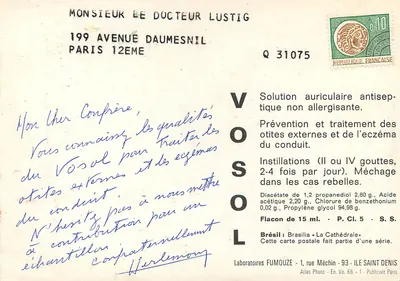 MONSIEUR LE DOCTEUR LUSTIG
199 AVENUE DAUMESNIL
PARIS 12EME
Q 31075
0,10
REPUBLIQUE FRANÇAISE
Mon Cher Confrère,
Vous connaissez les qualités
du Vosol pour traiter les
otites externes et les eczémas
du conduit.
N'hésitez pas à nous mettre
à contribution pour un
échantillon
confraternellement
VOSOL
Solution auriculaire antisep-
tique non allergisante.
Prévention et traitement des
otites externes et de l'eczéma
du conduit.
Instillations (II ou IV gouttes,
2-4 fois par jour). Méchage
dans les cas rebelles.
Diacétate de 1,2 propanediol 2,80 g., Acide
acétique 2,20 g., Chlorure de benzethonium
0,02 g., Propylène glycol 94,98 g.
Flacon de 15 ml. - P. Cl. 5 - S. S.
Brésil : Brasilia « La Cathédrale »
Cette carte postale fait partie d'une série.
Laboratoires FUMOUZE - 1, rue Méchin - 93 - ILE SAINT DENIS
Atlas Photo - En. Vo. 66 - 1 - Publicis Conseil Paris